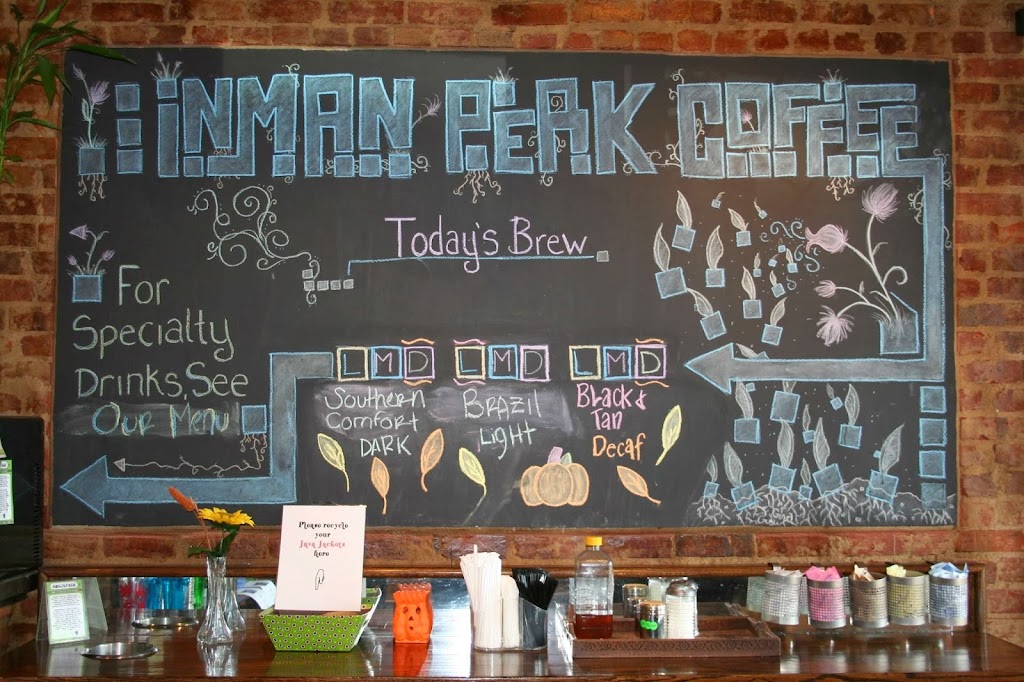 INMAN PERK COFFEE
Today's Brew
For
Specialty
Drinks, See
Our Menu
LMD
Southern
Comfort
DARK
LMD
BRAZIL
Light
LMD
Black &
Tan
Decaf
Please recycle
your
Java Jackets
here